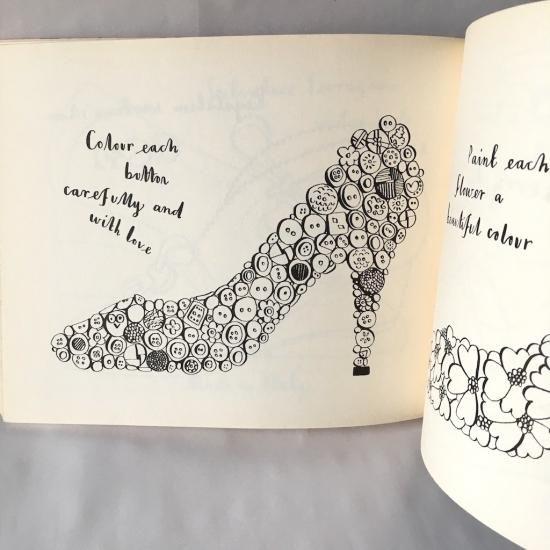 Colour each
button
carefully and
with love
Paint each
flower a
beautiful colour